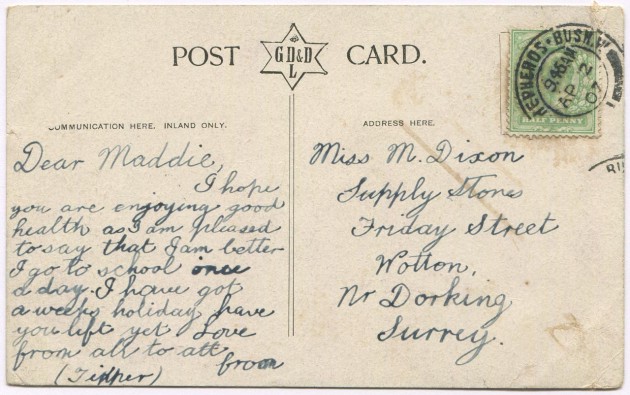 POST CARD.
G D & D
L
SHEPHERDS BUSH. W
9.45 AM
AP 2
07
HALF PENNY
COMMUNICATION HERE. INLAND ONLY.
ADDRESS HERE.
Dear Maddie,
I hope
you are enjoying good
health as I am pleased
to say that I am better
I go to school once
a day. I have got
a weeks holiday have
you left yet Love
from all to all
from
(Tipper)
Miss M. Dixon
Supply Stores
Friday Street
Wotton,
Nr Dorking
Surrey.